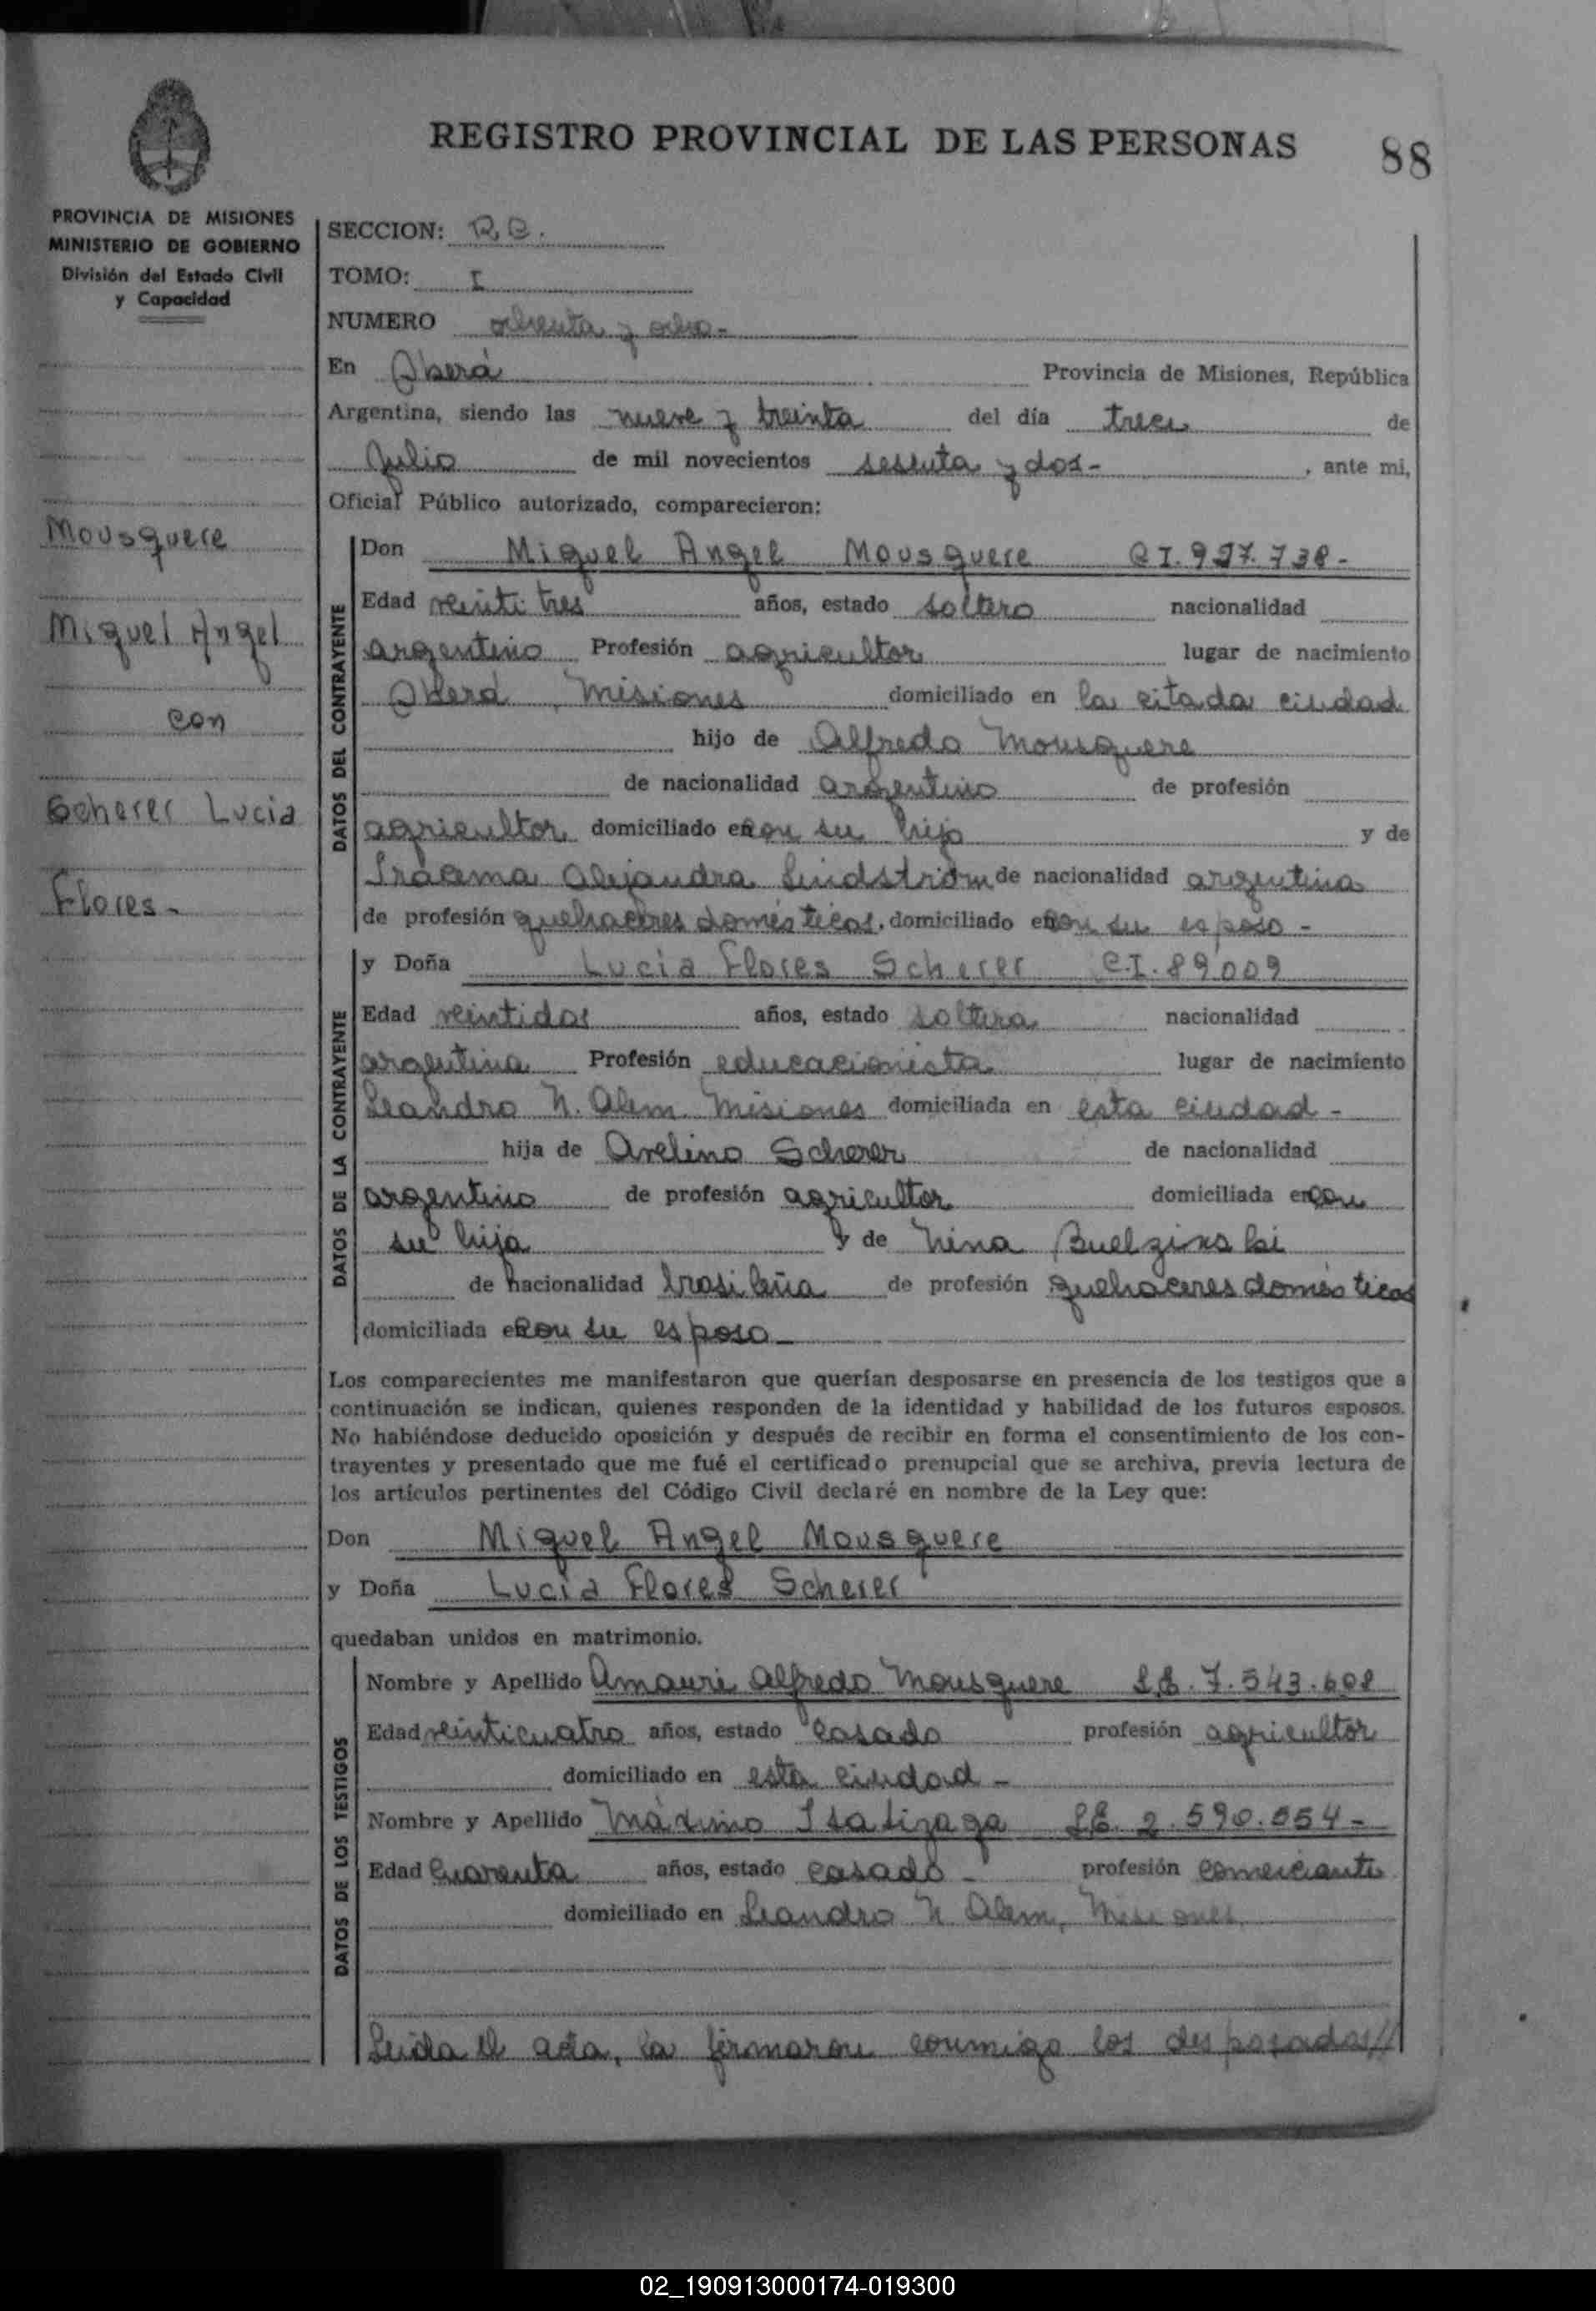 REGISTRO PROVINCIAL DE LAS PERSONAS
88
PROVINCIA DE MISIONES
MINISTERIO DE GOBIERNO
División del Estado Civil
y Capacidad
Mousquere
Miguel Angel
con
Scherer Lucia
Flores-
SECCION:
TOMO: I
NUMERO ochenta y ocho-
En Oberá Provincia de Misiones, República
Argentina, siendo las nueve y treinta del día trece de
Julio de mil novecientos sesenta y dos- , ante mi,
Oficial Público autorizado, comparecieron:
DATOS DEL CONTRAYENTE
Don Miguel Angel Mousquere C.I. 738-
Edad veintitres años, estado soltero nacionalidad
argentino Profesión agricultor lugar de nacimiento
Oberá, Misiones domiciliado en la citada ciudad
hijo de Alfredo Mousquere
de nacionalidad argentino de profesión
agricultor domiciliado en con su hijo y de
Iracema Alejandra Lindström de nacionalidad argentina
de profesión quehaceres domésticos, domiciliado en con su esposo-
DATOS DE LA CONTRAYENTE
y Doña Lucia Flores Scherer C.I. 89009
Edad veintidos años, estado soltera nacionalidad
argentina Profesión educacionista lugar de nacimiento
Leandro N. Alem Misiones domiciliada en esta ciudad-
hija de Avelino Scherer de nacionalidad
argentino de profesión agricultor domiciliada en con
su hija y de Nina
de nacionalidad brasileña de profesión quehaceres domésticos
domiciliada en con su esposo-
Los comparecientes me manifestaron que querían desposarse en presencia de los testigos que a
continuación se indican, quienes responden de la identidad y habilidad de los futuros esposos.
No habiéndose deducido oposición y después de recibir en forma el consentimiento de los con-
trayentes y presentado que me fué el certificado prenupcial que se archiva, previa lectura de
los artículos pertinentes del Código Civil declaré en nombre de la Ley que:
Don Miguel Angel Mousquere
y Doña Lucia Flores Scherer
quedaban unidos en matrimonio.
DATOS DE LOS TESTIGOS
Nombre y Apellido Amauri Alfredo Mousquere L.E. 7.543.608
Edad veinticuatro años, estado casado profesión agricultor
domiciliado en esta ciudad-
Nombre y Apellido Máximo Isatizaga L.E. 2.590.554-
Edad cuarenta años, estado casado- profesión comerciante
domiciliado en Leandro N Alem, Misiones
Leida el acta, la firmaron conmigo los desposados//
02_190913000174-019300